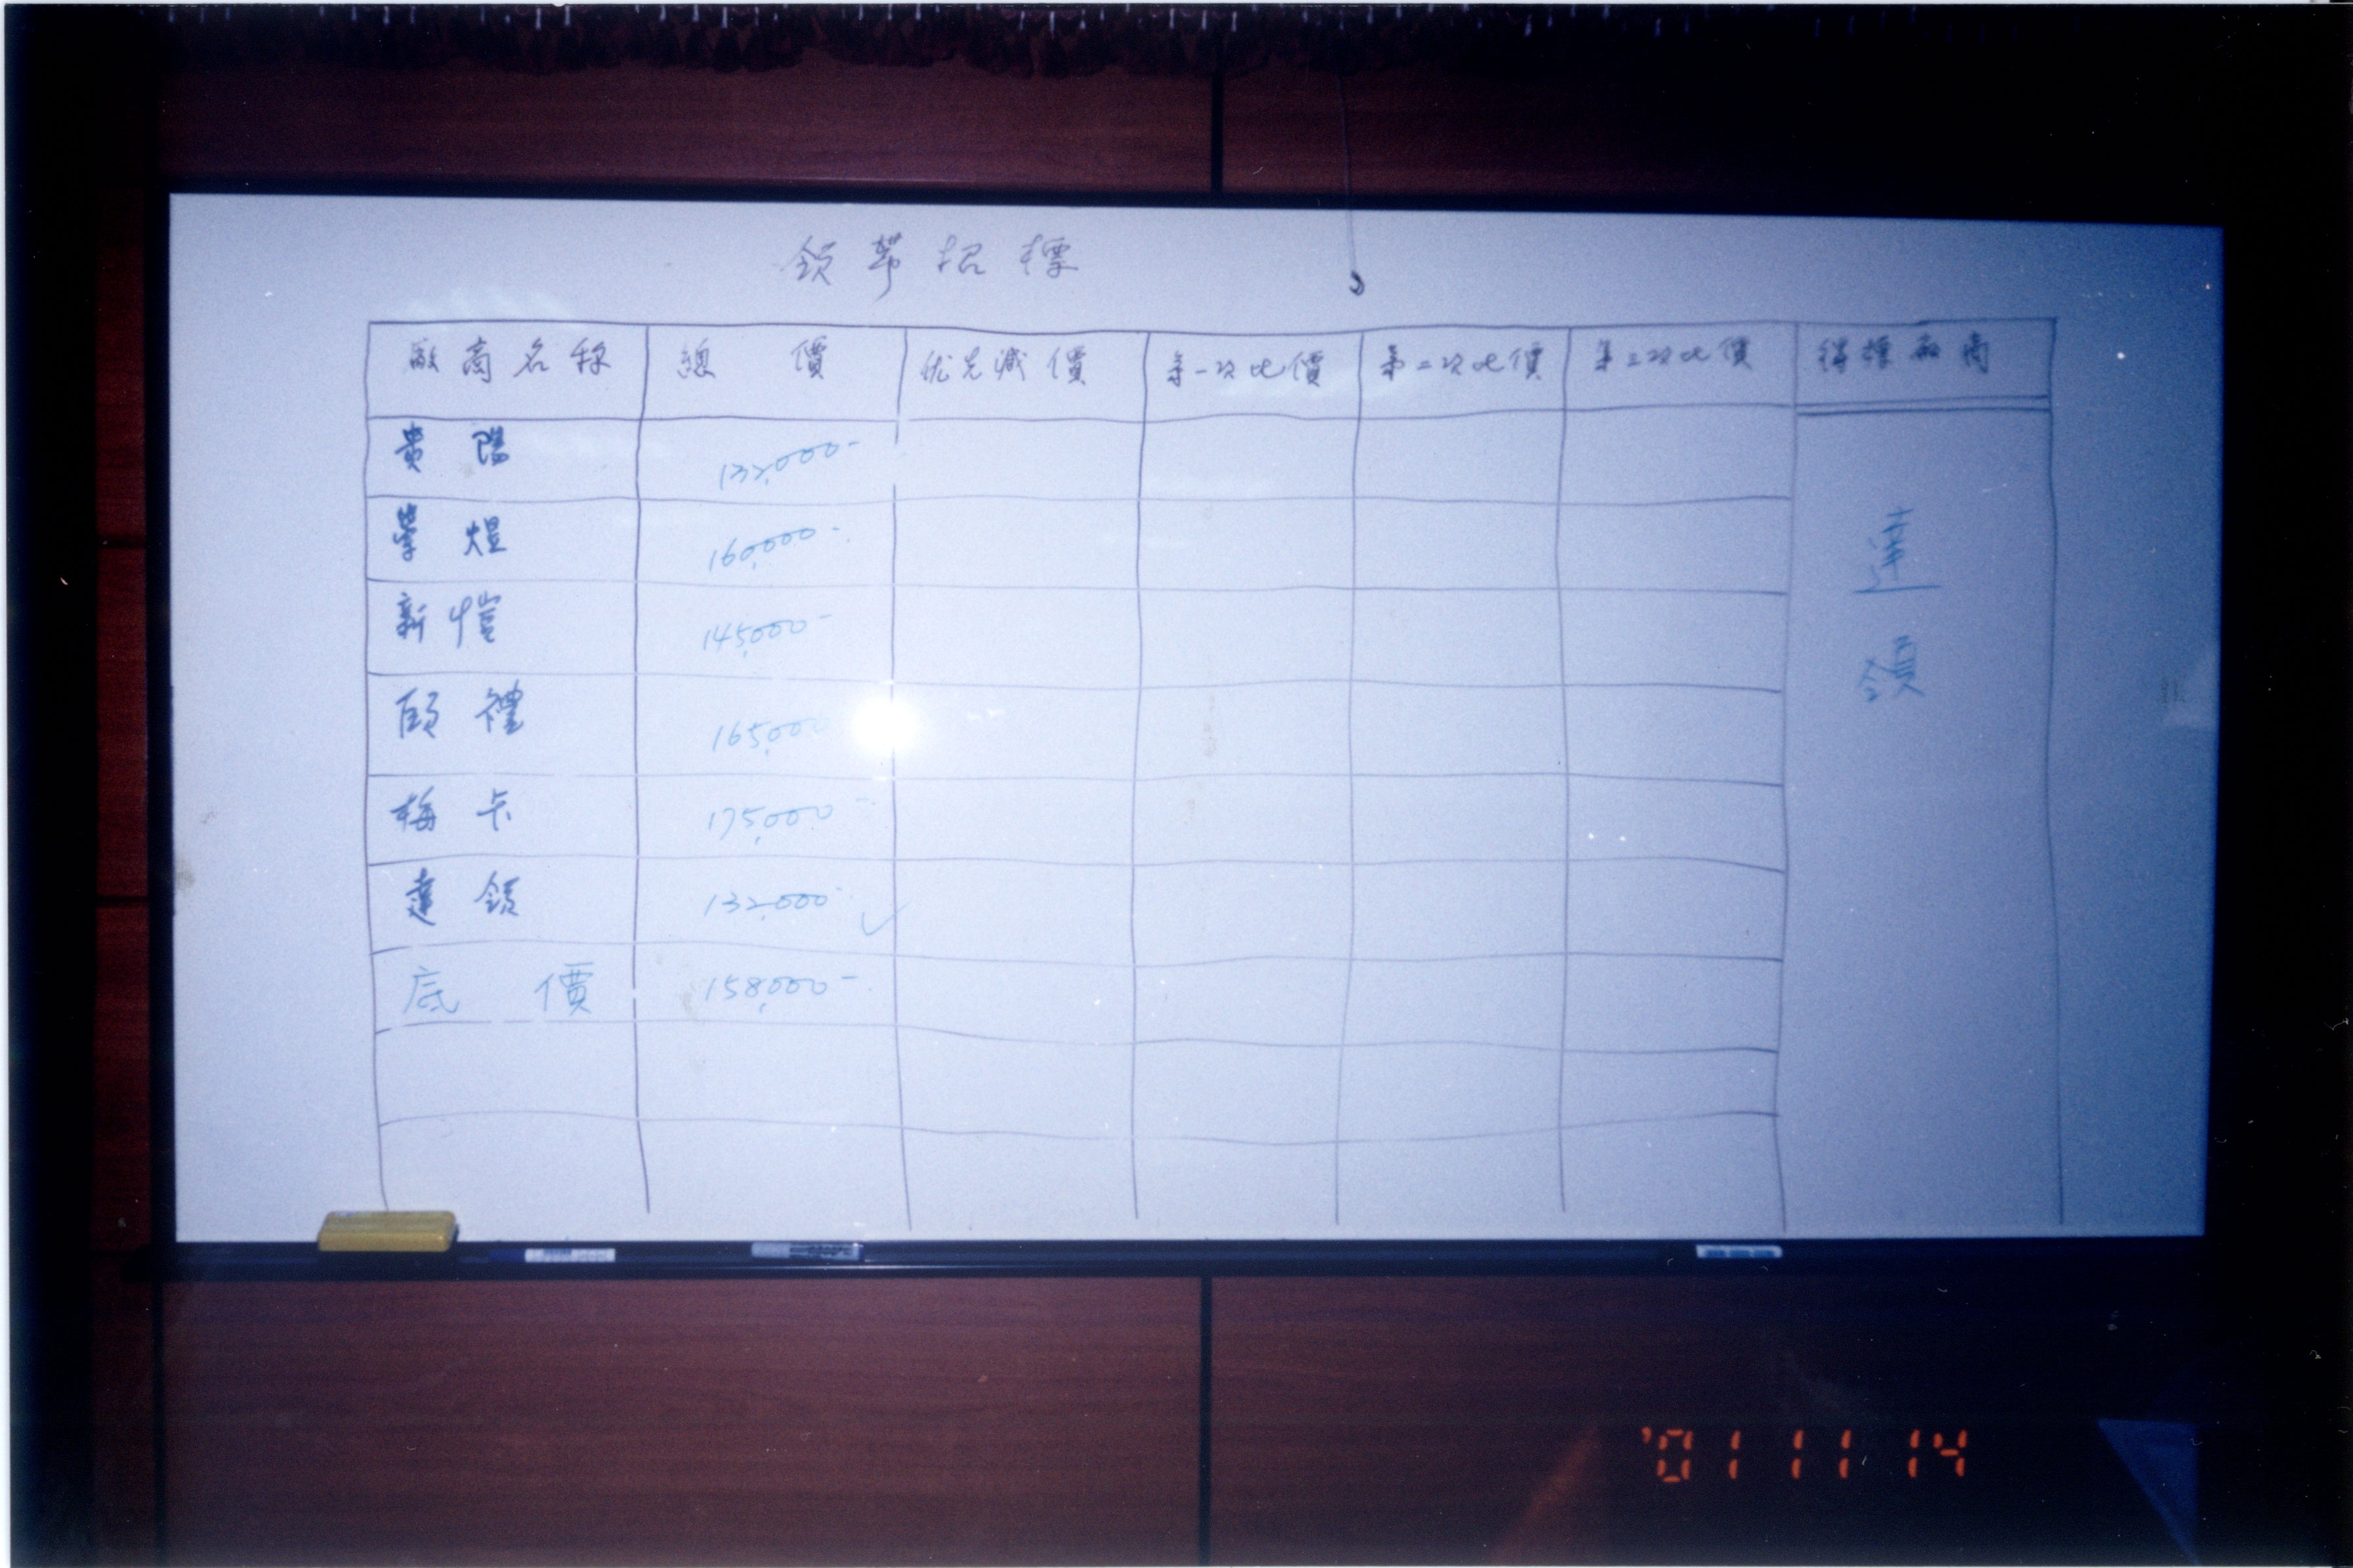 領帶招標
廠商名称 總價 优先減價 第一次比價 第二次比價 第三次比價 得標廠商
貴陽 132,000-
學煌 160,000-
新愷 145,000-
頎禮 165,000
梅卡 175,000-
達領 132,000- ✓
底價 158,000-
達領
'01 11 14